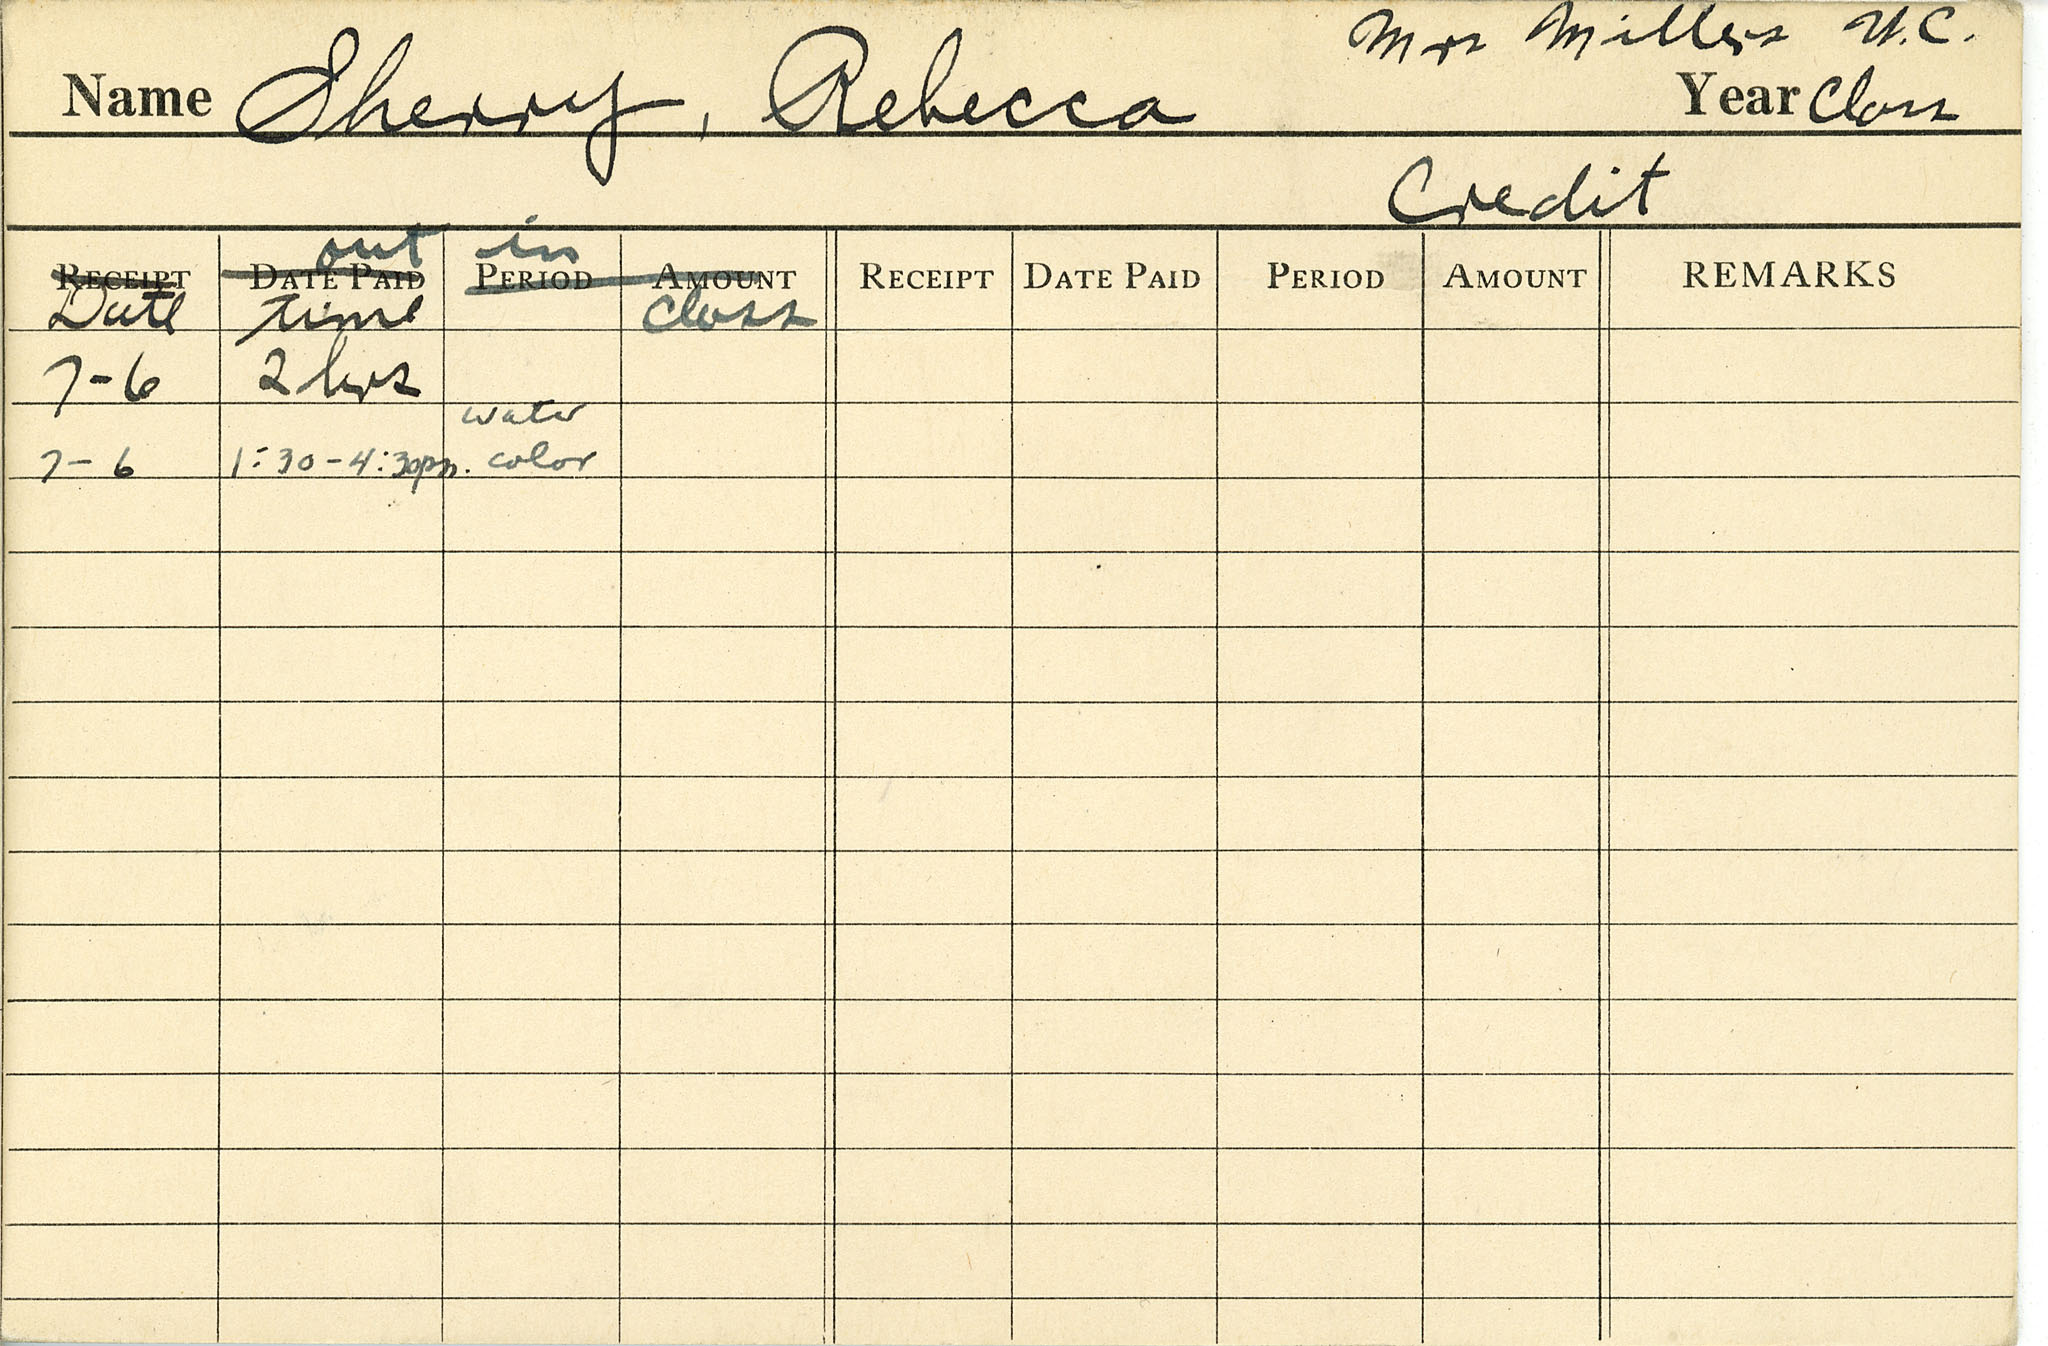 Mrs Millers U.C.
Name Sherry, Rebecca Year Class
Credit
out in
RECEIPT DATE PAID PERIOD AMOUNT RECEIPT DATE PAID PERIOD AMOUNT REMARKS
Date time class
7-6 2 hrs
water
7-6 1:30-4:30pm. color